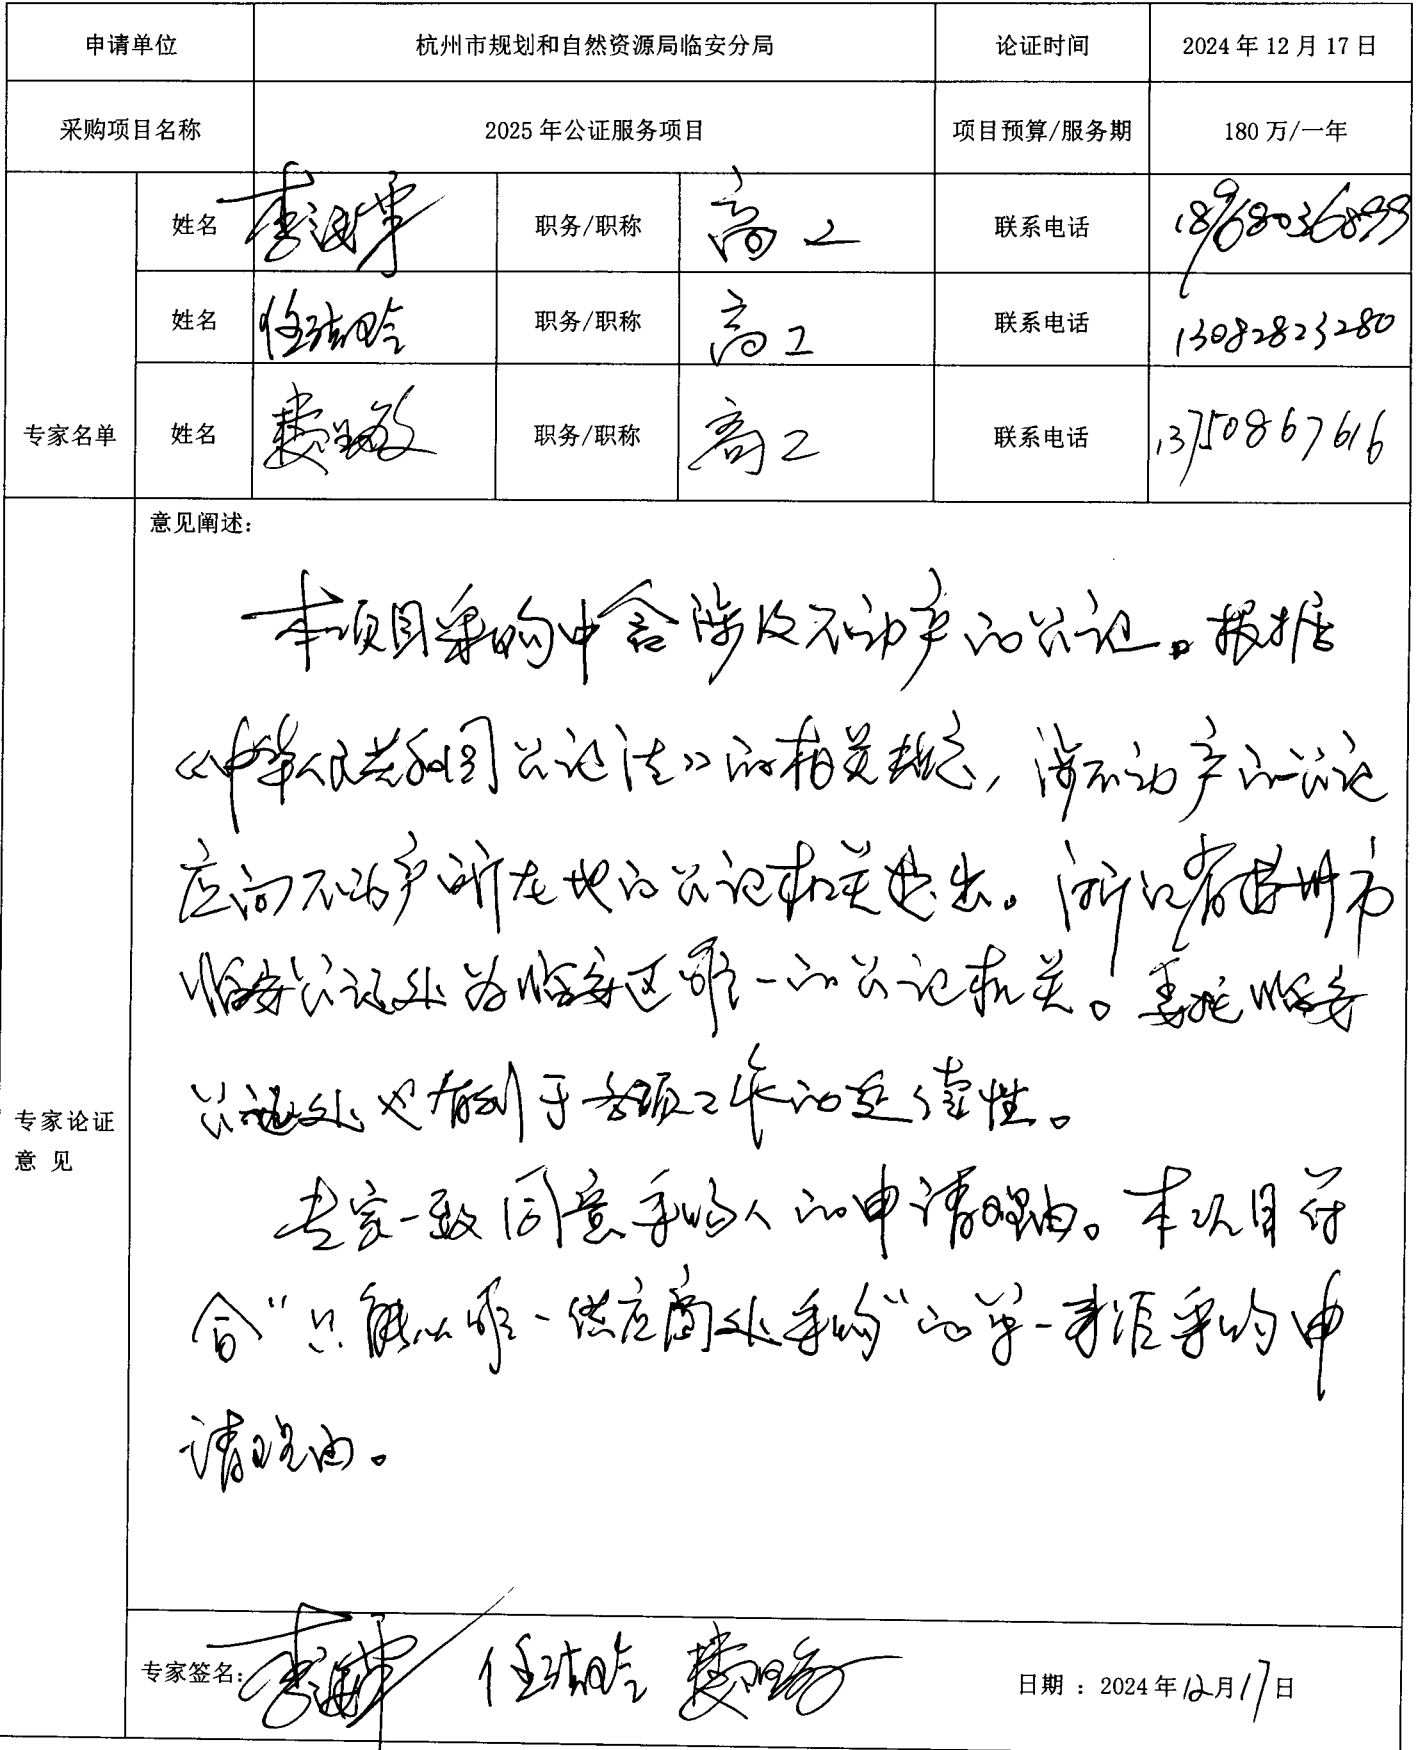 申请单位 杭州市规划和自然资源局临安分局 论证时间 2024年12月17日
采购项目名称 2025年公证服务项目 项目预算/服务期 180万/一年
专家名单
姓名 职务/职称 高工 联系电话 18968036899
姓名 职务/职称 高工 联系电话 13082823280
姓名 职务/职称 高工 联系电话 13750867616
专家论证
意见
意见阐述：
本项目采购中含涉及不动产的公证。根据
《中华人民共和国公证法》的相关规定，涉不动产的公证
应向不动产所在地的公证机关提出。浙江省杭州市
临安公证处为临安区唯一的公证机关。委托临安
公证处也有利于各项工作的延续性。
专家一致同意采购人的申请理由。本项目符
合“只能从唯一供应商处采购”的单一来源采购申
请理由。
专家签名： 日期：2024年12月17日